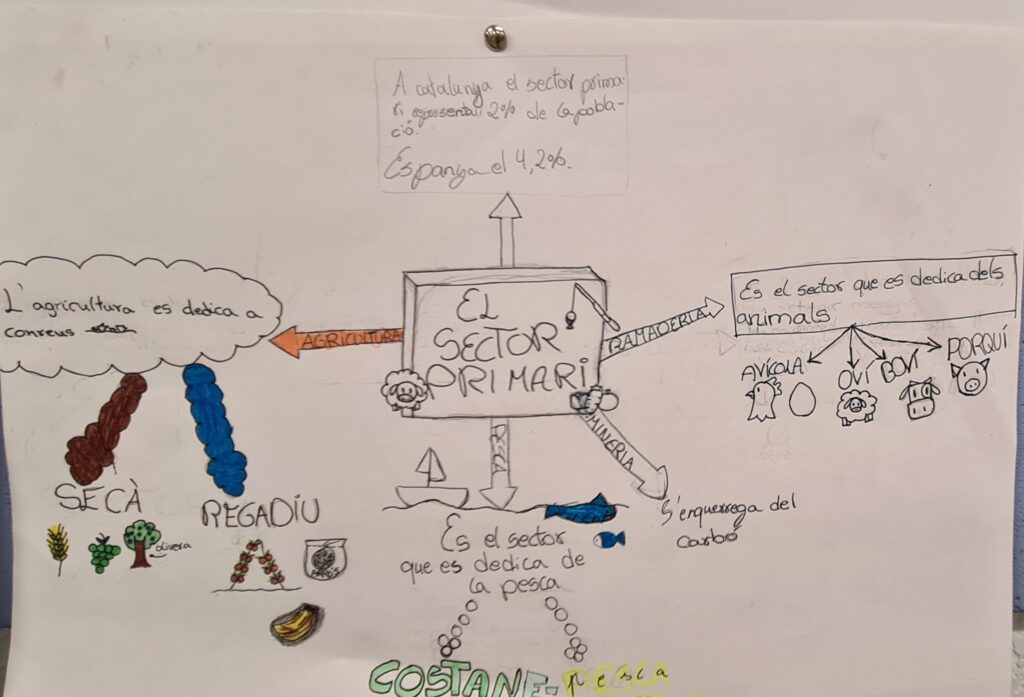 A catalunya el sector prima-
ri representa 2% de la pobla-
ció.
Espanya el 4,2%.
EL
SECTOR
PRIMARI
AGRICULTURA
L'agricultura es dedica a
conreus
SECÀ
olivera
REGADIU
RAMADERIA
Es el sector que es dedica dels
animals
AVÍCOLA
OVÍ
BOVÍ
PORQUÍ
MINERIA
S'enquerrega del
carbó
PESCA
Es el sector
que es dedica de
la pesca
COSTANE-
pesca